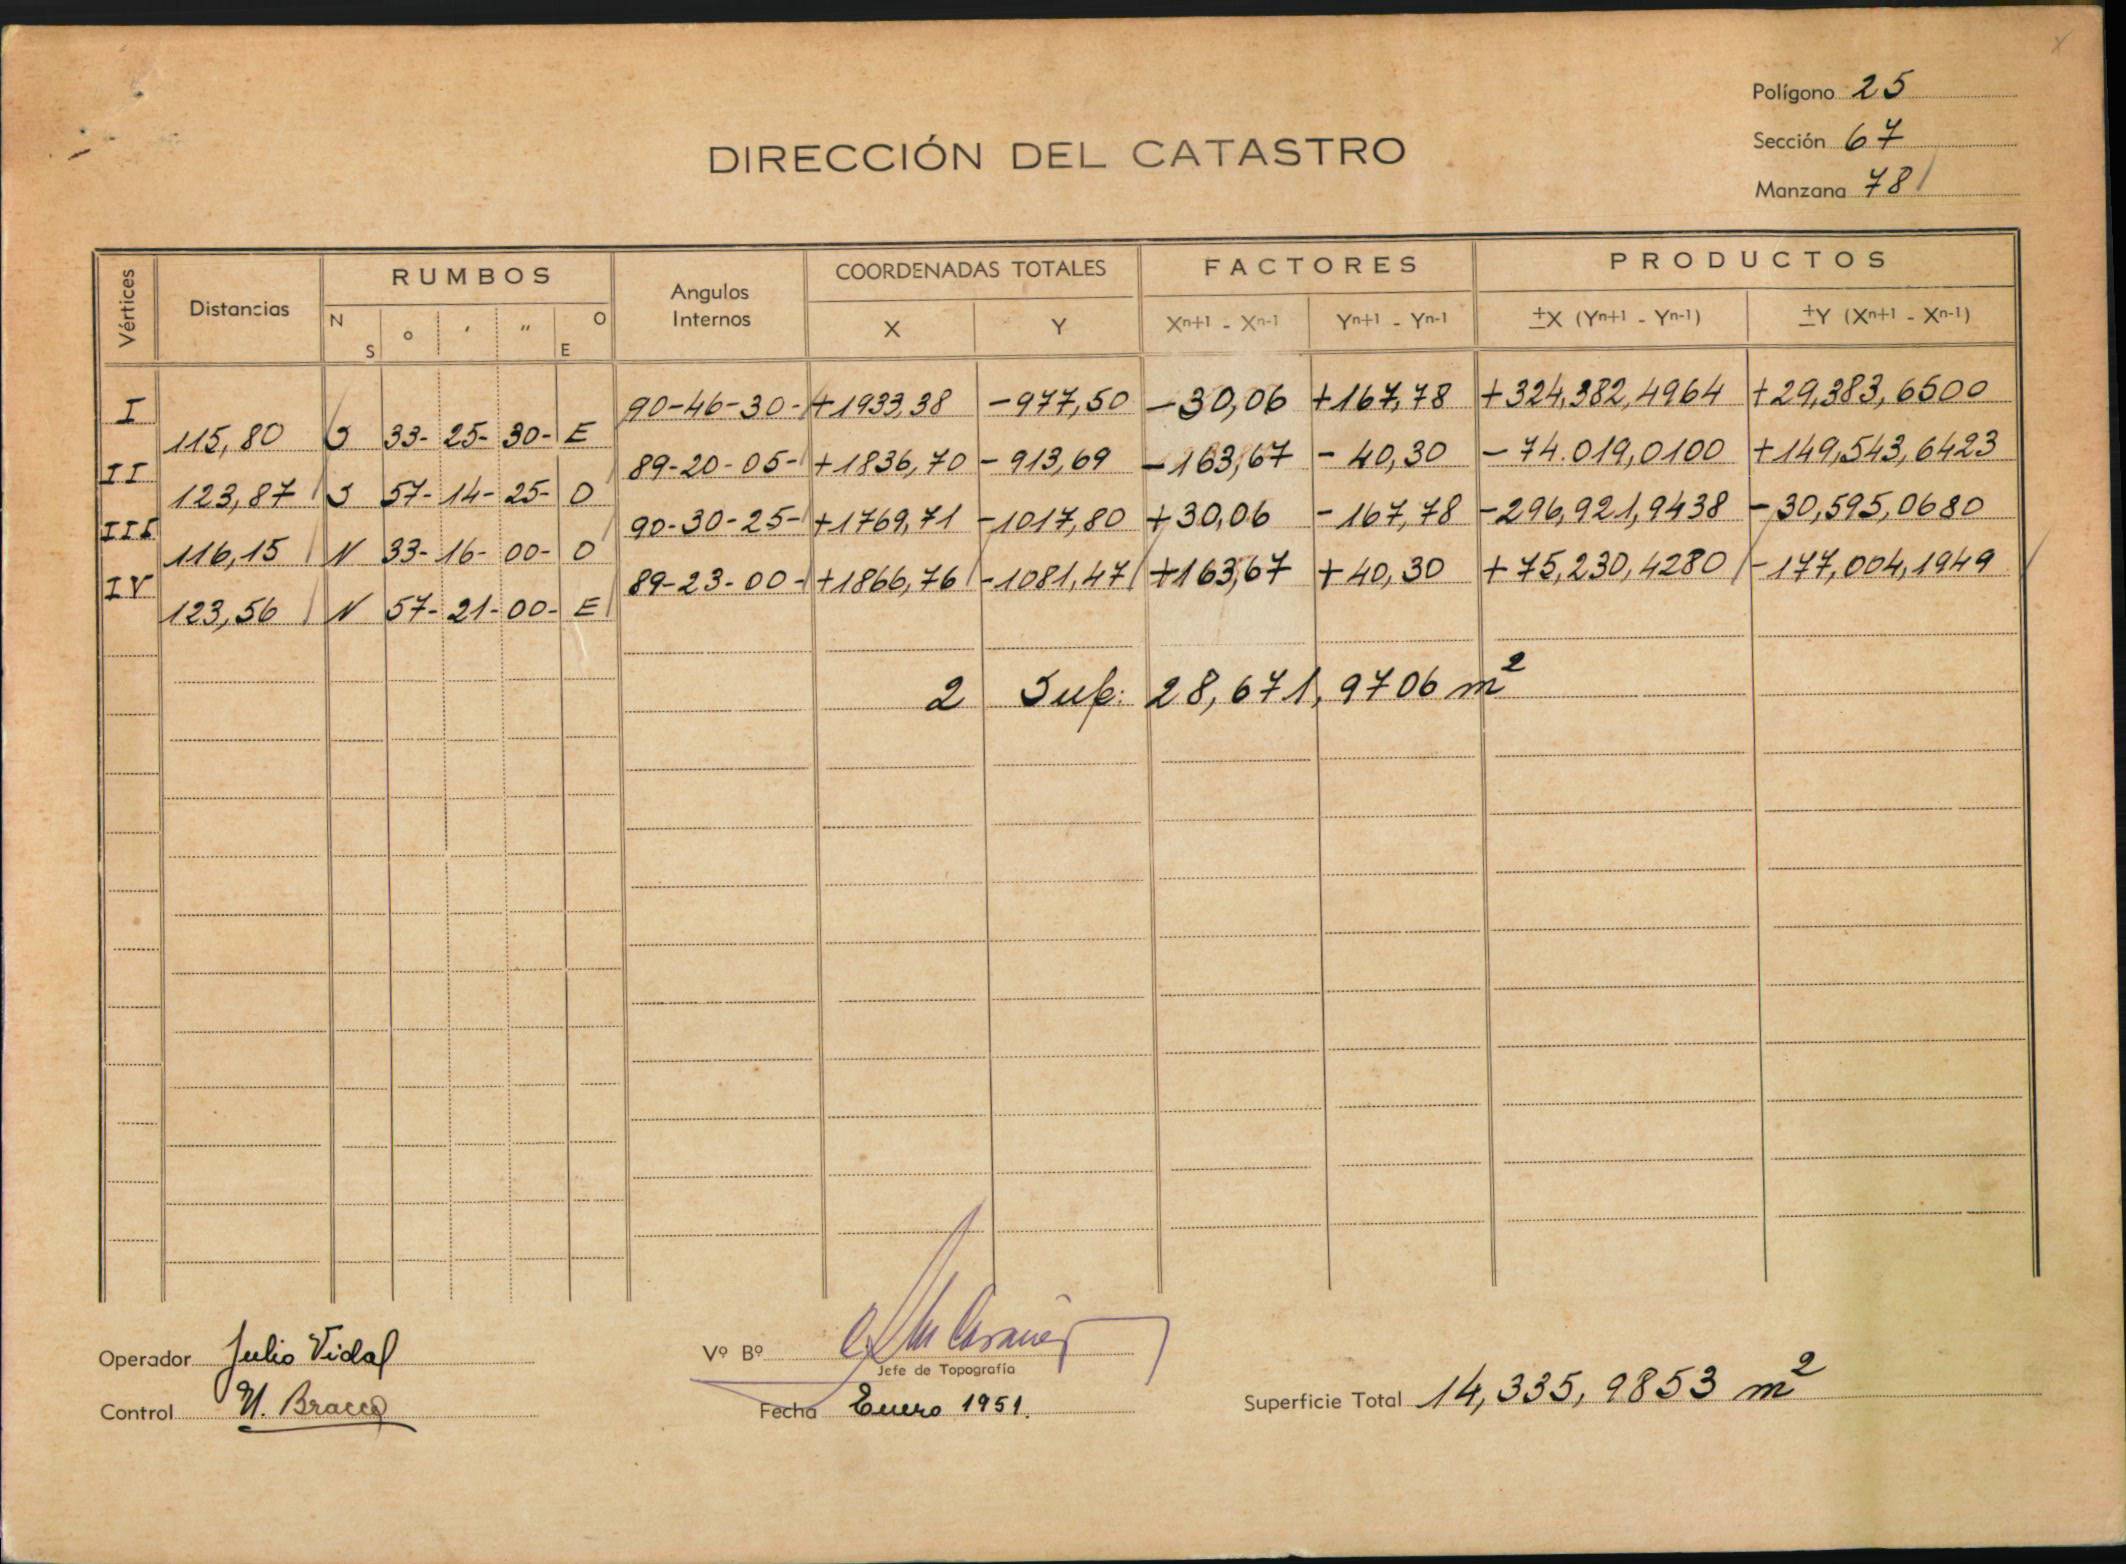 Polígono 25
Sección 67
Manzana 781
DIRECCIÓN DEL CATASTRO
Vértices Distancias RUMBOS Angulos Internos COORDENADAS TOTALES FACTORES PRODUCTOS
N S o ′ ″ O E X Y Xn+1 - Xn-1 Yn+1 - Yn-1 ±X (Yn+1 - Yn-1) ±Y (Xn+1 - Xn-1)
I 90-46-30- +1933,38 -977,50 -30,06 +167,78 +324,382,4964 +29,383,6500
115,80 S 33- 25- 30- E
II 89-20-05- +1836,70 -913,69 -163,67 -40,30 -74.019,0100 +149,543,6423
123,87 S 57- 14- 25- O
III 90-30-25- +1769,71 -1017,80 +30,06 -167,78 -296,921,9438 -30,595,0680
116,15 N 33- 16- 00- O
IV 89-23-00- +1866,76 -1081,47 +163,67 +40,30 +75,230,4280 -177,004,1949
123,56 N 57- 21- 00- E
2 Sup: 28,671,9706 m²
Operador Julio Vidal
Vº Bº
Jefe de Topografía
Control N. Bracco
Fecha Enero 1951.
Superficie Total 14,335,9853 m²